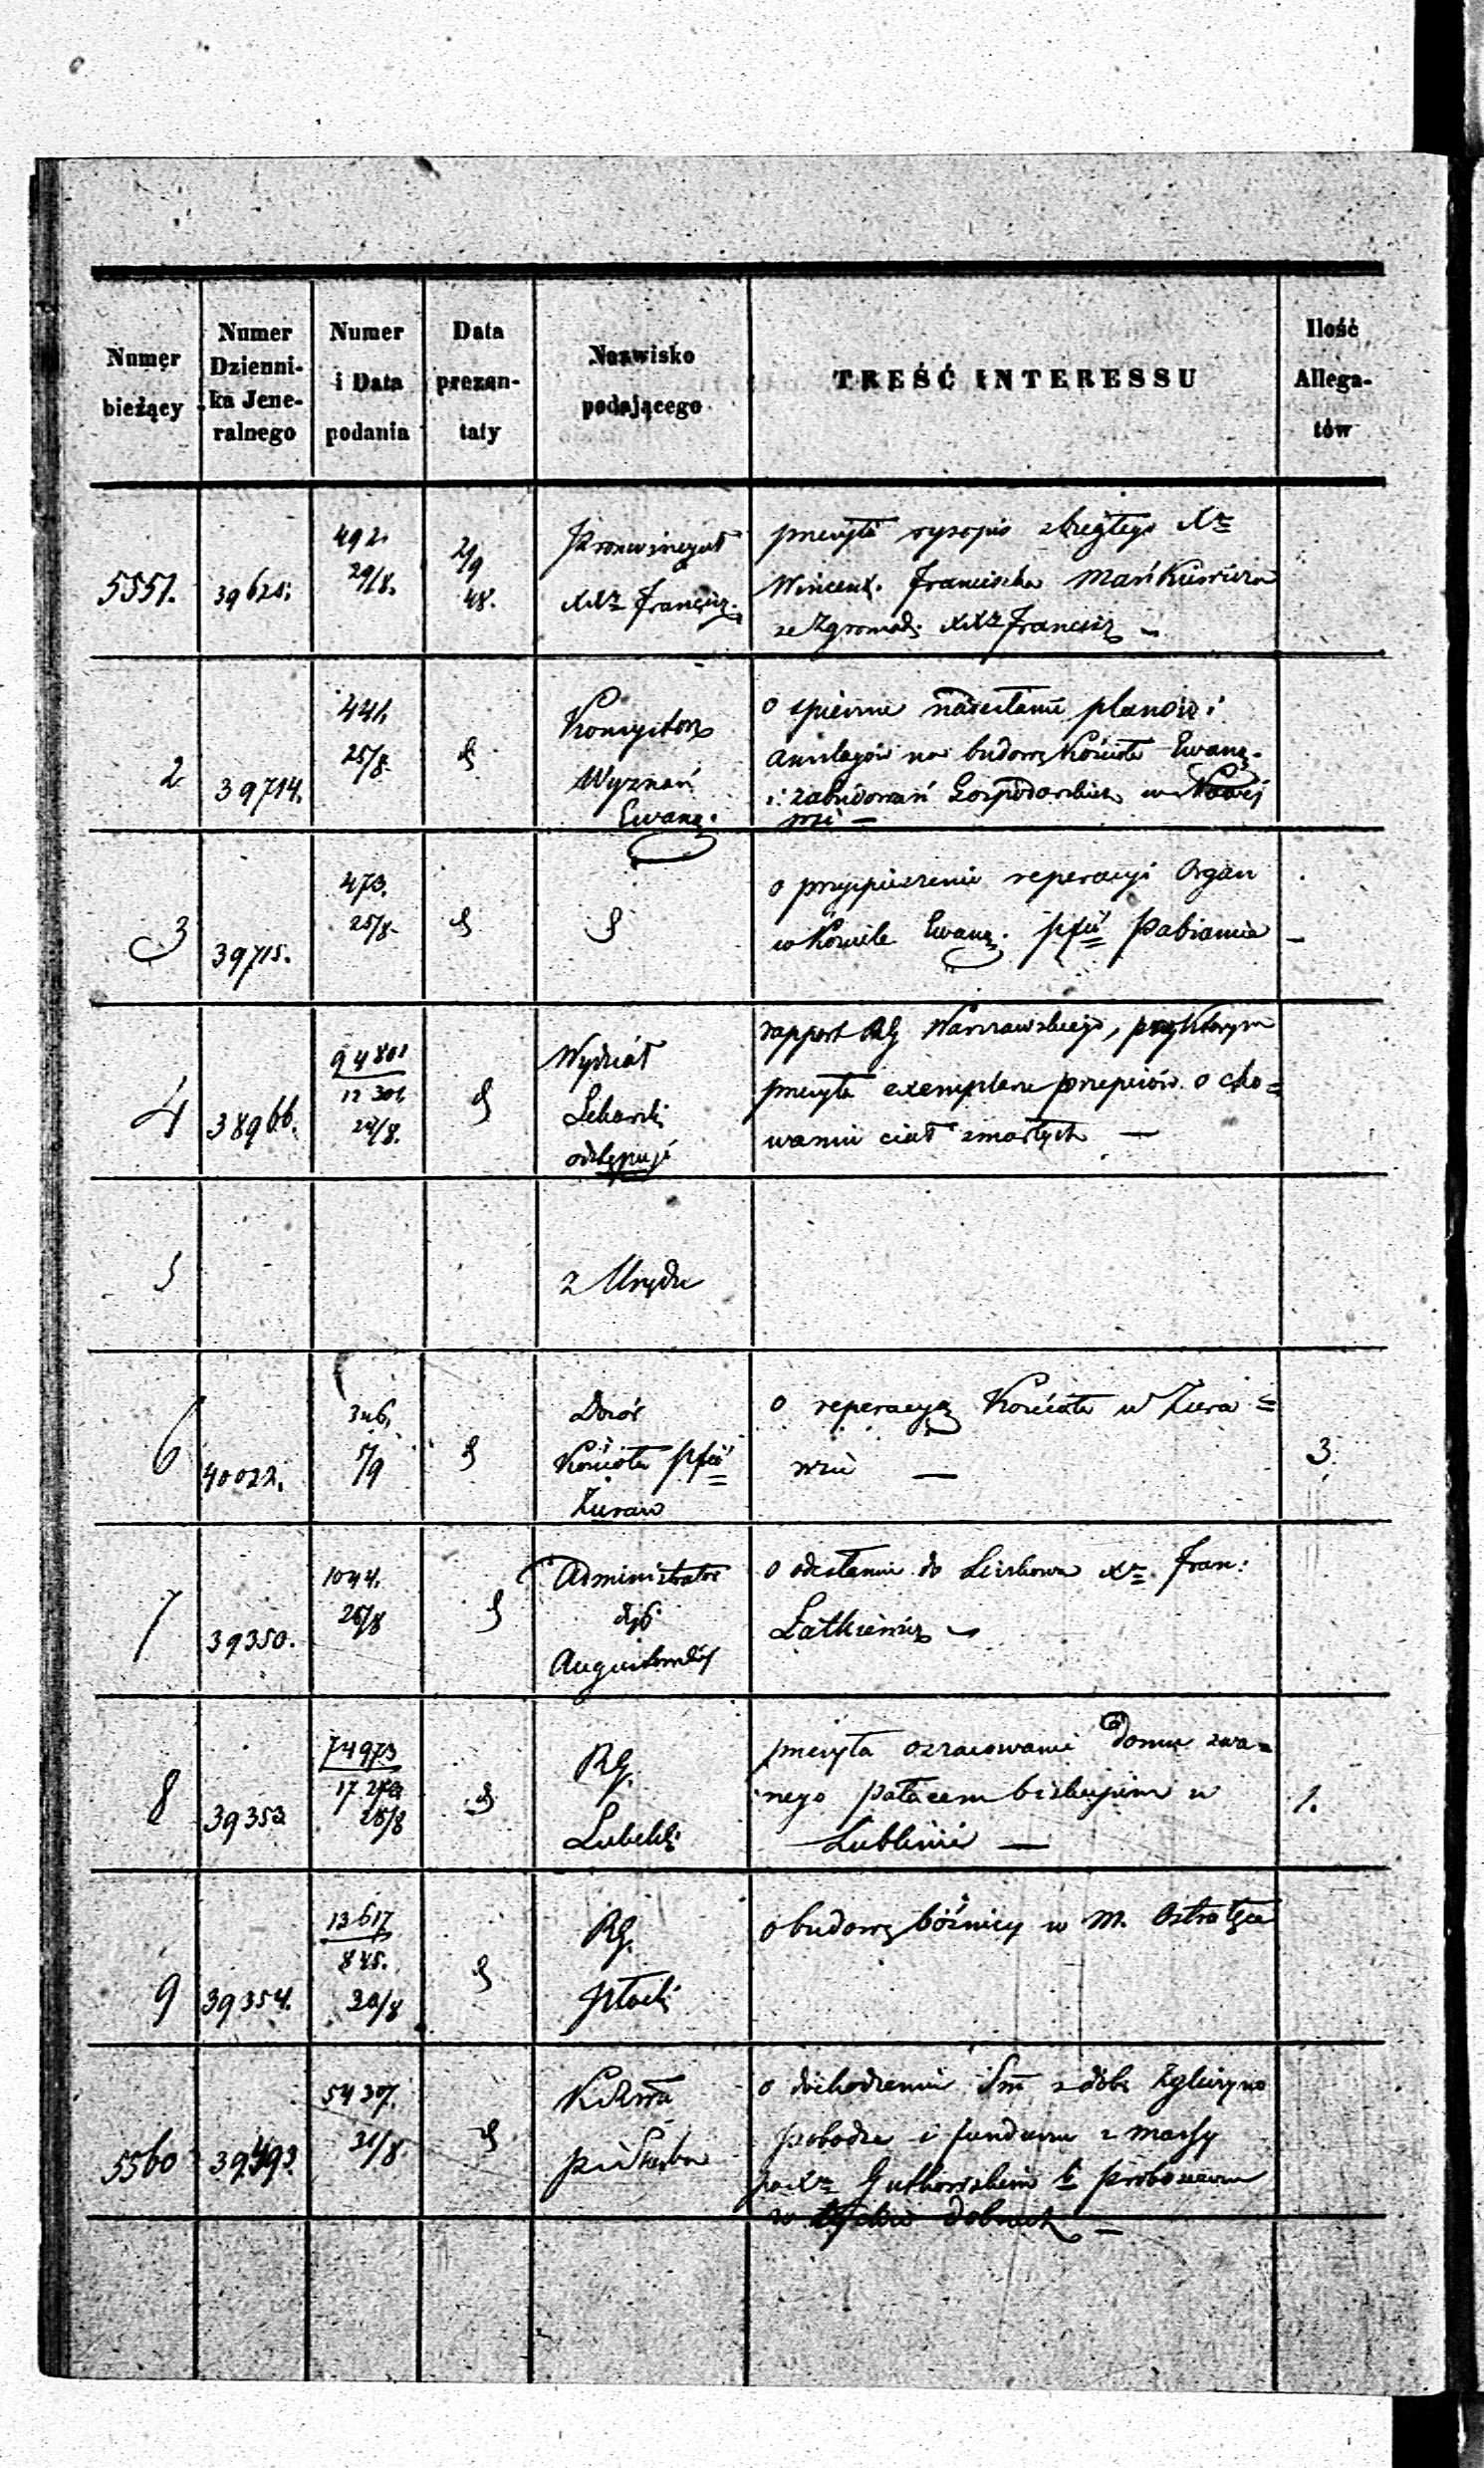 Numer bieżący
Numer Dzienni- ka Jene- ralnego
Numer i Data podania
Data prezen- taty
Nazwisko podającego
TREŚĆ INTERESSU
Ilość Allega- tów
5551. 39625. 492. 29/8. 2/9 48.
Prowincyał
XXr Francisz.
przesyła rysopis zbiegłego Xr
Wincent. Franciszka Mańkiewicza
ze Zgromad. XXr Francisz —
2 39714. 441. 25/8.
Konsystorz
Wyznań
Ewang.
o spieszne nadesłanie planów i
anszlagów na budowę Kościoła Ewang.
i zabudowań Gospodarskich w Nowej
wsi —
3 39715. 473. 25/8.
o przyspieszenie reperacyi Organ
w Kościele Ewang. pfii Pabianice —
4 38966. 94801 12301.
Wydział
Lekarski
odstępuje
rapport RG Warszawskiego, przy którym
przesyła exemplarz przepisów o cho=
waniu ciał zmarłych —
5
z Urzędu
6 40022. 5/9
Dozór
Kościoła pfii
Żuraw
o reperacyą Kościoła w Żura=
wiu —
3.
7 39350. 1044. 26/8
Administrator
dyć.
Augustowskiej
o odesłanie do Liszkowa Xr Fran:
Łatkiewicz —
8 39353 74973 28/8
RG.
Lubelski
przesyła oszacowanie Domu zwa=
nego pałacem biskupim w
Lublinie —
1.
9 39354. 13617 845. 30/8
RG.
Płocki
o budowę bóźnicy w M. Ostrołęce
5560 39493. 54307. 31/8.
K R
P i Skarbu
o dochodzeniu Sm z dóbr
i funduszu z massy
po Xr Gutkowskim b proboszczu
w tychże dobrach —